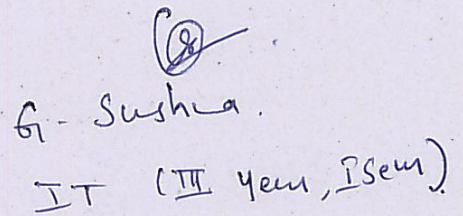 G. Sushma.
IT (III Year, I Sem)